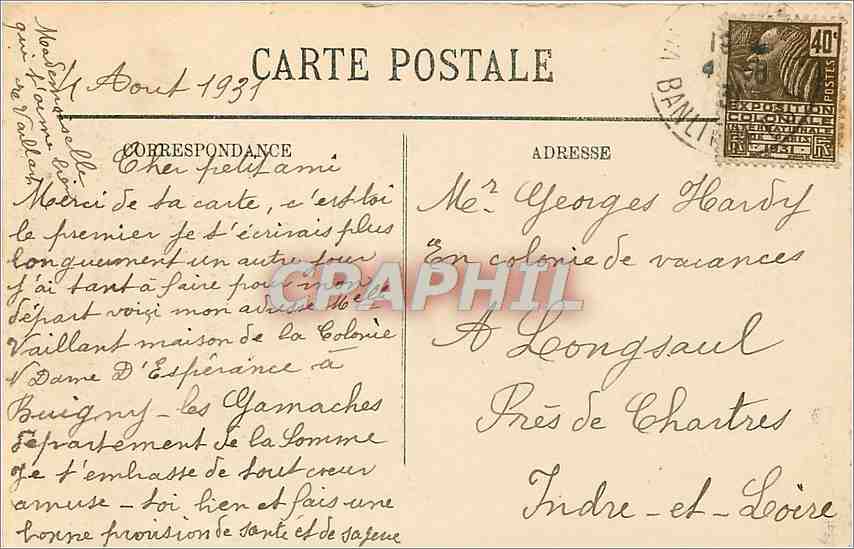 CARTE POSTALE
4 Aout 1931
Mademoiselle
qui t'aime bien
Vaillant
40c
POSTES
EXPOSITION
COLONIALE
INTERNATIONALE
DE PARIS
1931
BANLI
CORRESPONDANCE
Cher petit ami
Merci de ta carte, c'est toi
le premier je t'écrirais plus
longuement un autre jour
j'ai tant à faire pour mon
départ voiçi mon adresse Melle
Vaillant maison de la Colonie
N Dame D'Espérance à
Buigny-les Gamaches
département de la Somme
Je t'embrasse de tout cœur
amuse-toi bien et fais une
bonne provision de santé et de sagesse
ADRESSE
Mr Georges Hardy
En colonie de vacances
A Longsaul
Près de Chartres
Indre-et-Loire
CPAPHIL